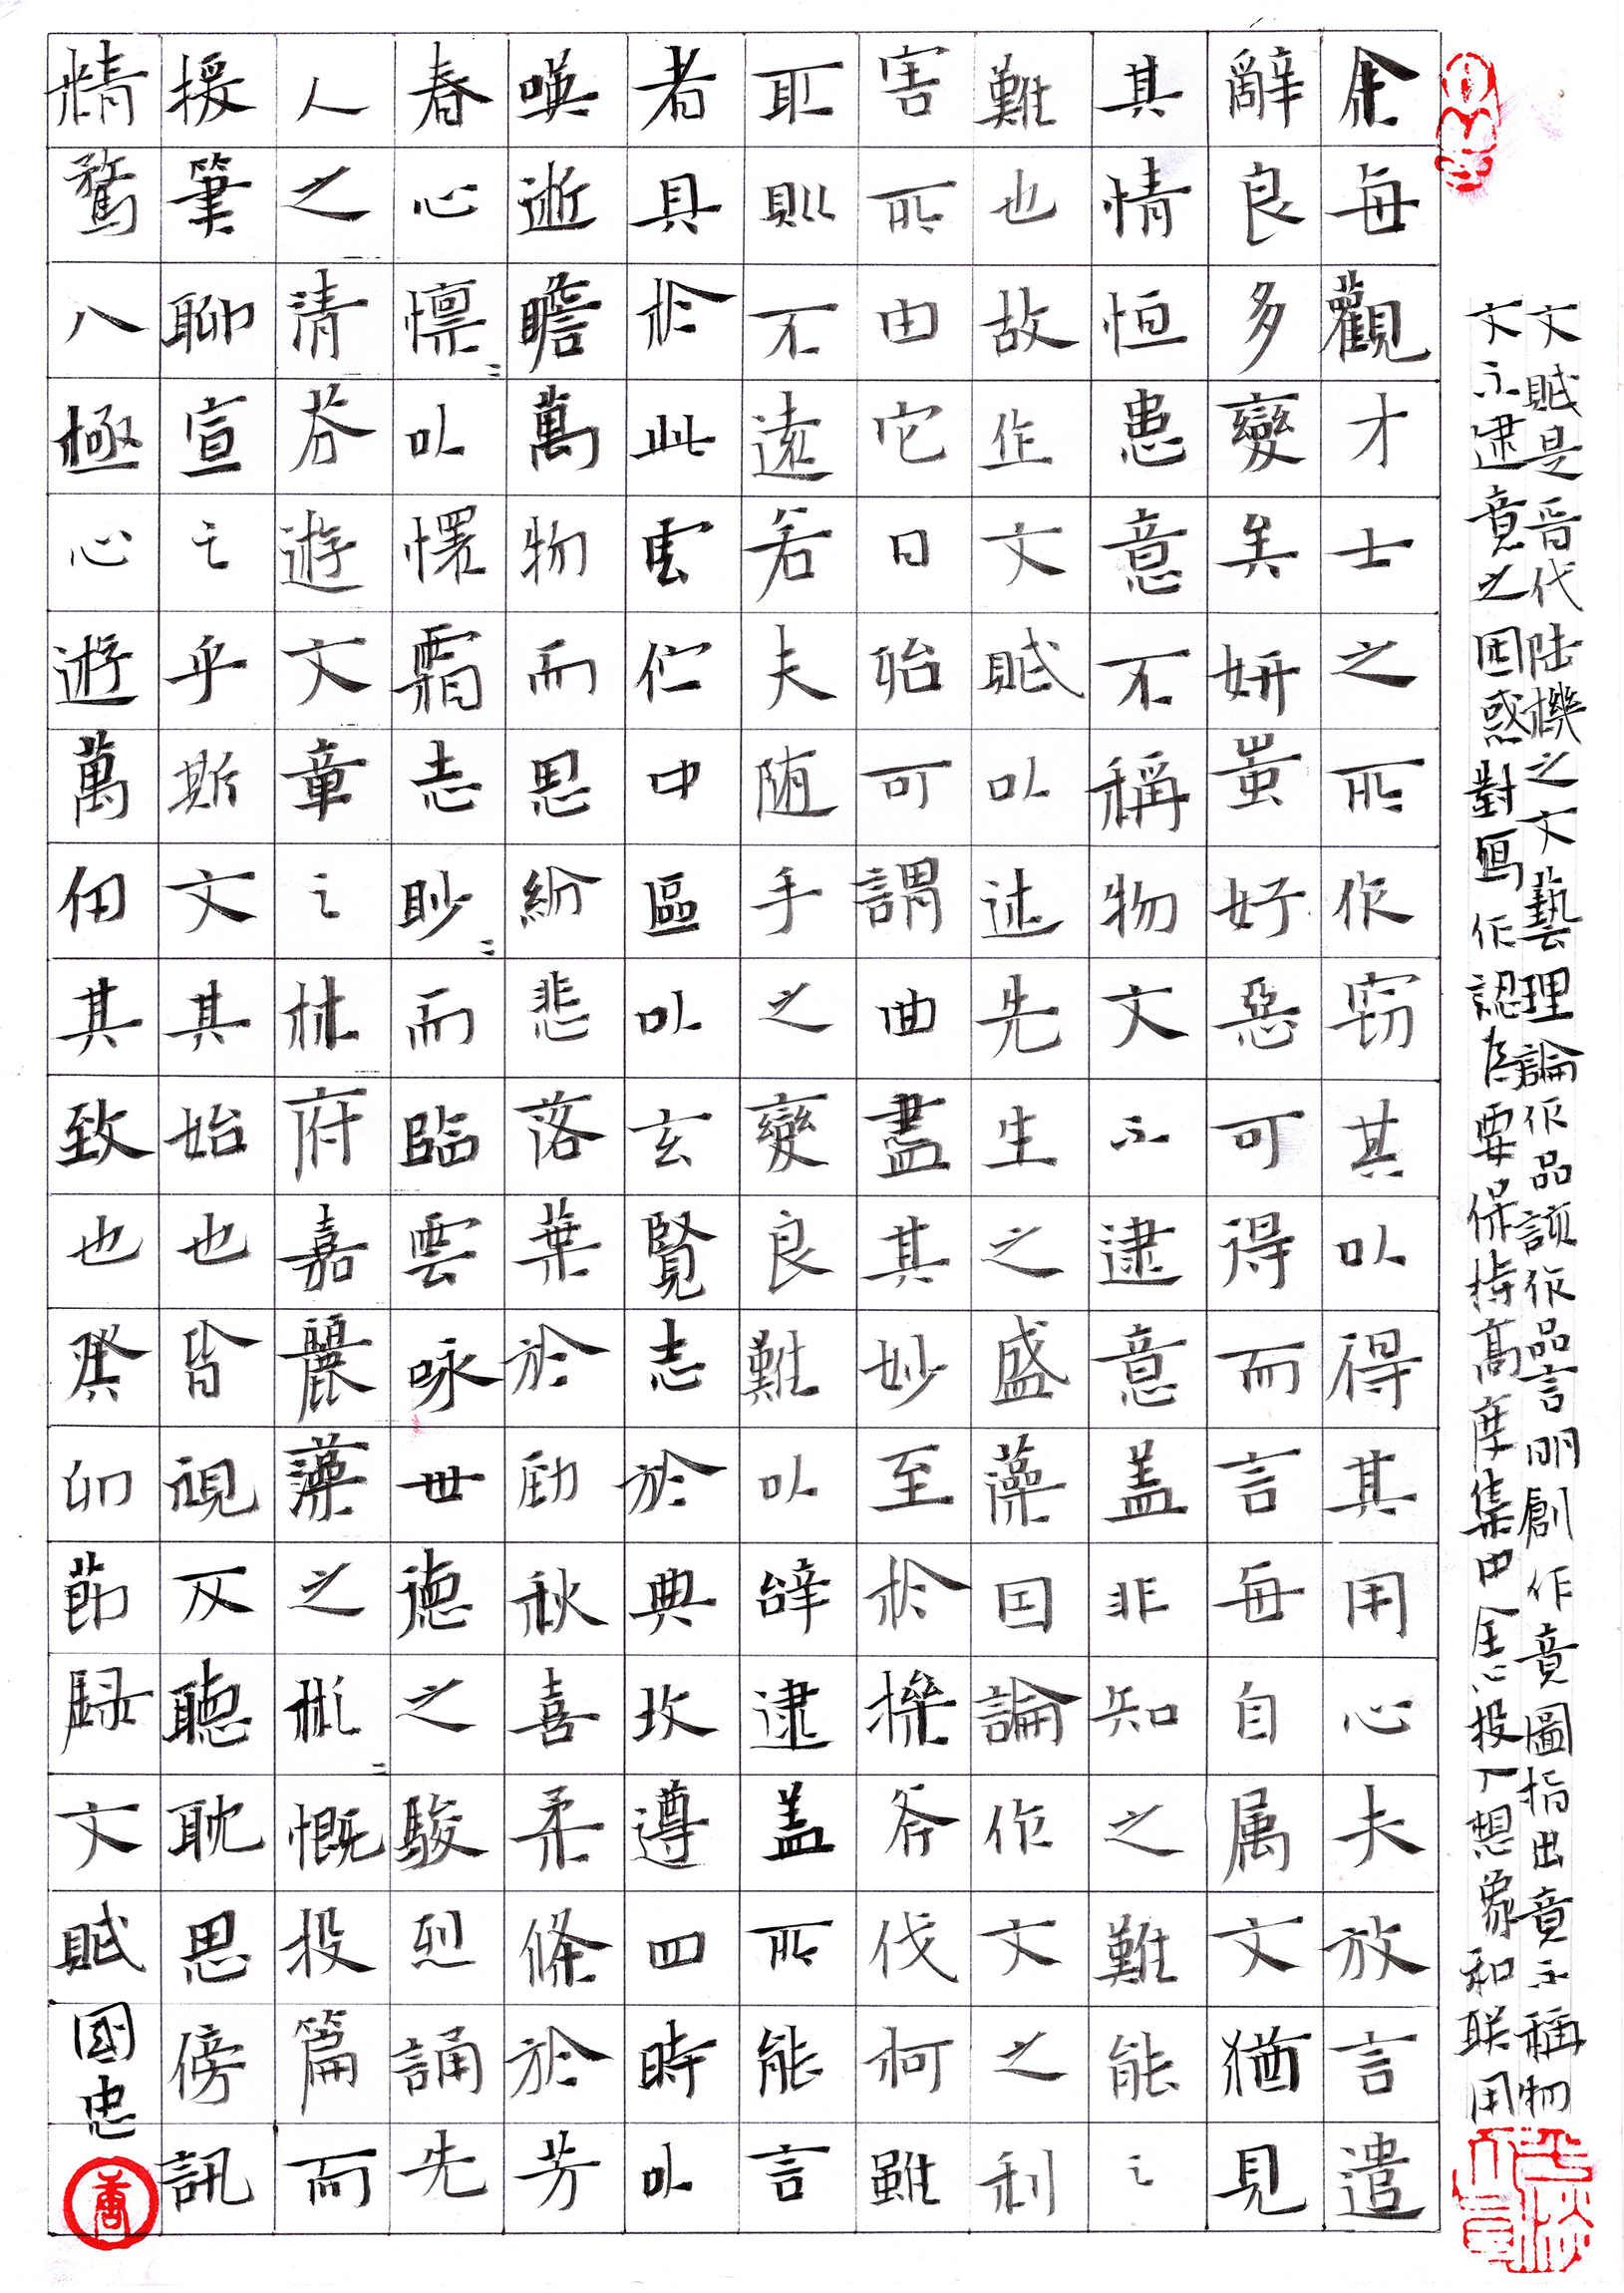 文賦是晋代陆機之文藝理論作品該作品言明創作意圖指出意不稱物
文不逮意之困惑對寫作認為要保持高度集中全心投入想象和联用
余每觀才士之所作窃其以得其用心夫放言遣
辭良多變矣妍蚩好惡可得而言每自属文猶見
其情恒患意不稱物文不逮意盖非知之難能之
難也故作文賦以述先生之盛藻因論作文之利
害所由它日殆可謂曲盡其妙至於操斧伐柯雖
取則不遠若夫随手之變良難以辝逮盖所能言
者具於此云伫中區以玄覧志於典坟遵四時以
嘆逝瞻萬物而思紛悲落葉於勁秋喜柔條於芳
春心懔〻以懷霜志眇〻而臨雲咏世德之駿烈誦先
人之清芬遊文章之林府嘉麗藻之彬〻慨投篇而
援筆聊宣之乎斯文其始也皆視反聽耽思傍訊
精騖八極心遊萬仞其致也癸卯節録文賦國忠
唐